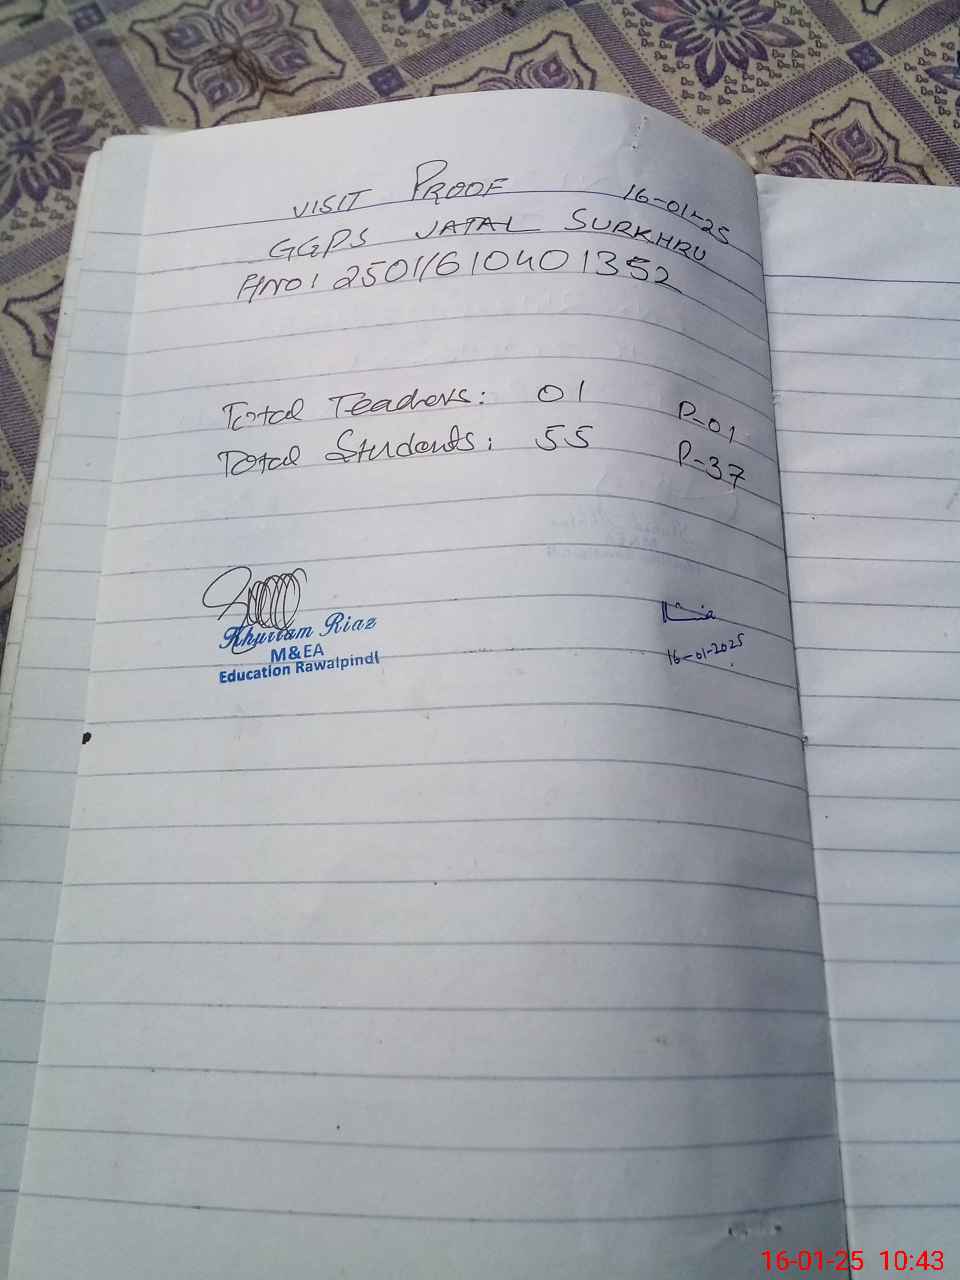 VISIT PROOF 16-01-25
GGPS JATAL SURKHRU
25011610401352
Total Teachers: 01 P-01
Total Students: 55 P-37
Khurram Riaz
M&EA
Education Rawalpindi
16-01-2025
16-01-25 10:43